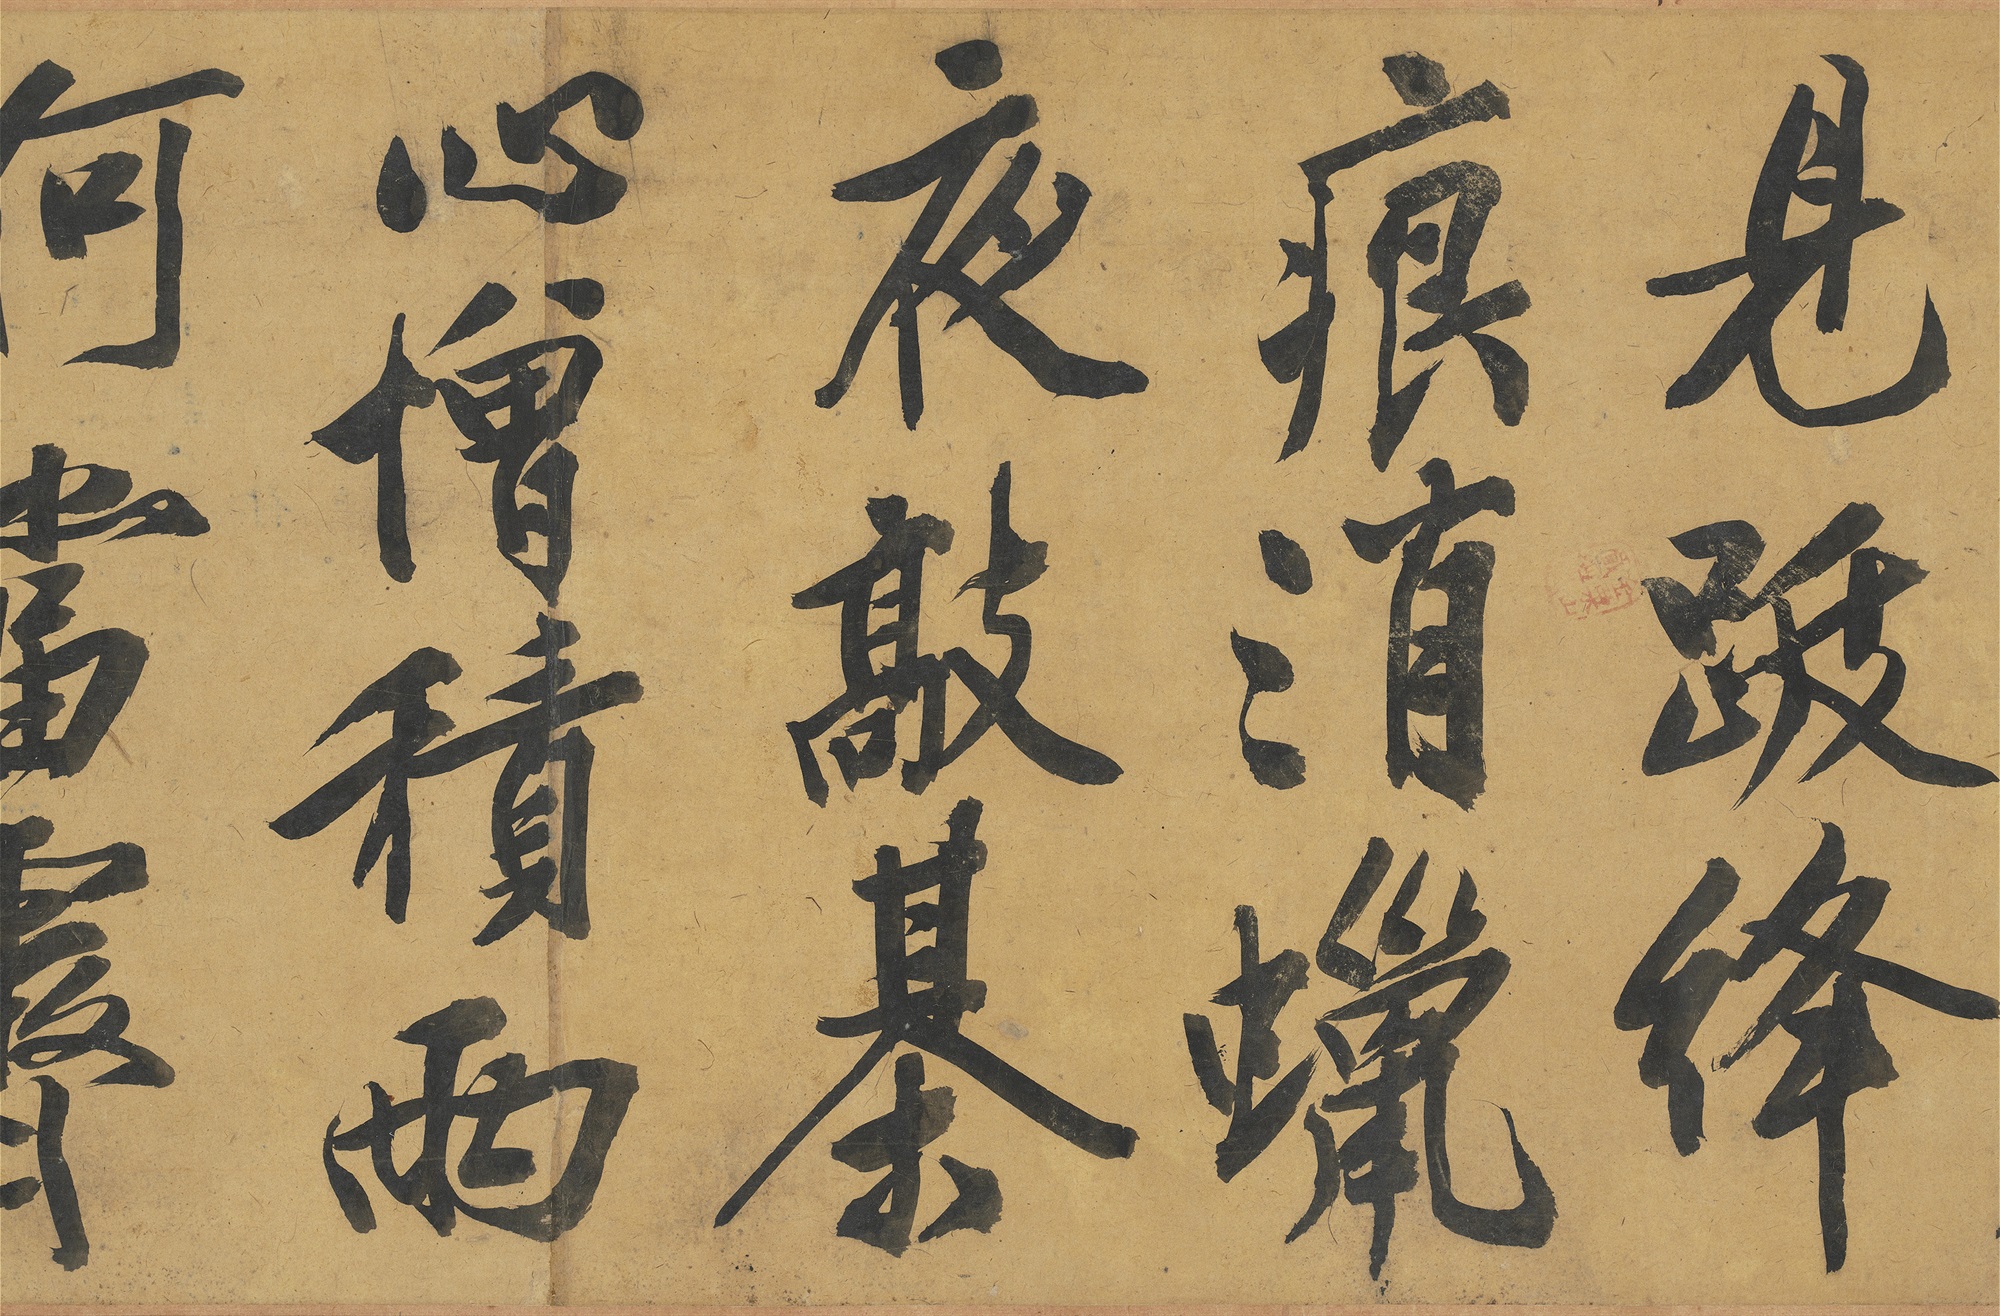 見跋絳
痕消蠟
夜敲棊
心憎積雨
何當霽